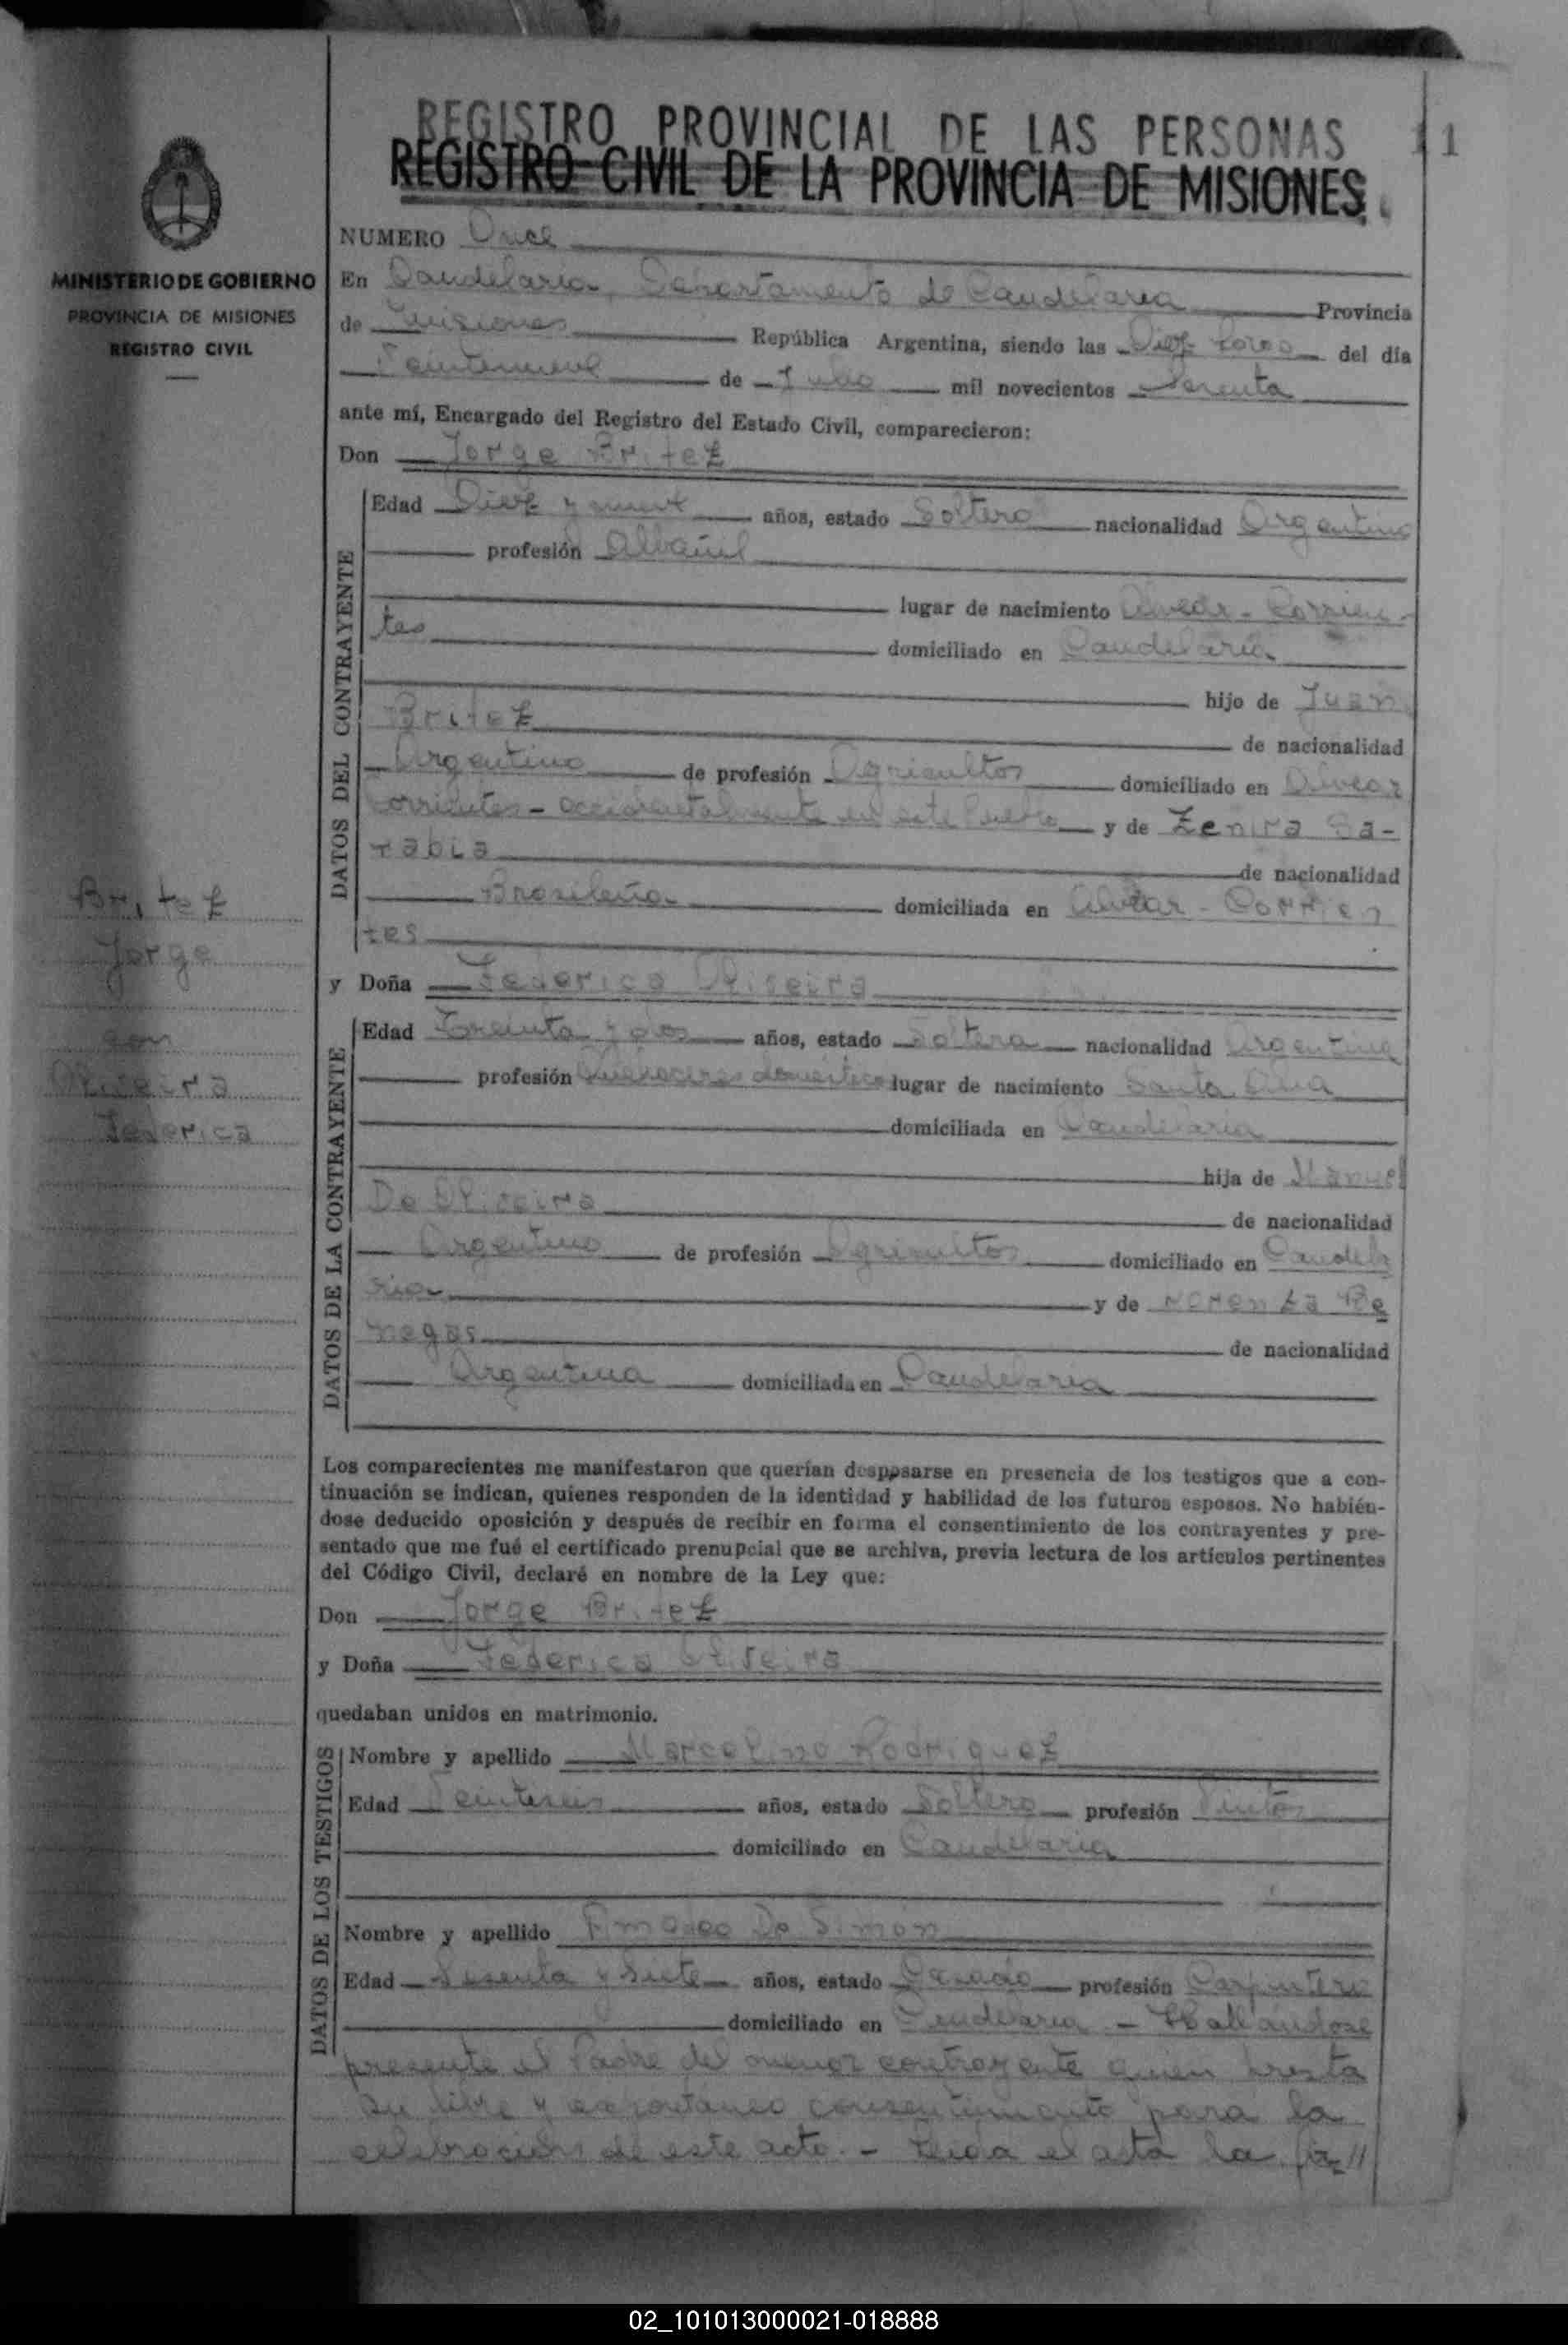 REGISTRO PROVINCIAL DE LAS PERSONAS 11
REGISTRO CIVIL DE LA PROVINCIA DE MISIONES.
MINISTERIO DE GOBIERNO
PROVINCIA DE MISIONES
REGISTRO CIVIL
Britez
Jorge
con
Oliveira
Federica
NUMERO Once
En Candelaria, Departamento de Candelaria Provincia
de Misiones República Argentina, siendo las Diez horas del día
Veintinueve de Julio mil novecientos
ante mí, Encargado del Registro del Estado Civil, comparecieron:
Don Jorge Britez
DATOS DEL CONTRAYENTE
Edad Diez y nueve años, estado Soltero nacionalidad Argentino
profesión Albañil
lugar de nacimiento Alvear - Corrien-
tes domiciliado en Candelaria
hijo de Juan
Britez de nacionalidad
Argentino de profesión Agricultor domiciliado en Alvear
Corrientes - accidentalmente en este Pueblo y de Zenira Sa-
rabia de nacionalidad
Brasileña domiciliada en Alvear - Corrien
tes
y Doña Federica Oliveira
DATOS DE LA CONTRAYENTE
Edad Treinta y dos años, estado Soltera nacionalidad Argentina
profesión Quehaceres domésticos lugar de nacimiento Santa Ana
domiciliada en Candelaria
hija de Manuel
De Oliveira de nacionalidad
Argentino de profesión Agricultor domiciliado en Candela
ria y de
negas de nacionalidad
Argentina domiciliada en Candelaria
Los comparecientes me manifestaron que querían desposarse en presencia de los testigos que a con-
tinuación se indican, quienes responden de la identidad y habilidad de los futuros esposos. No habién-
dose deducido oposición y después de recibir en forma el consentimiento de los contrayentes y pre-
sentado que me fué el certificado prenupcial que se archiva, previa lectura de los artículos pertinentes
del Código Civil, declaré en nombre de la Ley que:
Don Jorge Britez
y Doña Federica Oliveira
quedaban unidos en matrimonio.
DATOS DE LOS TESTIGOS
Nombre y apellido Marcelino Rodriguez
Edad Veintiseis años, estado Soltero profesión Pintor
domiciliado en Candelaria
Nombre y apellido Amadeo De Simon
Edad Sesenta y Siete años, estado Casado profesión Carpintero
domiciliado en Candelaria - Hallandose
presente el Padre del menor contrayente quien presta
su libre y espontáneo consentimiento para la
celebración de este acto. - Leida el acta la
02_101013000021-018888